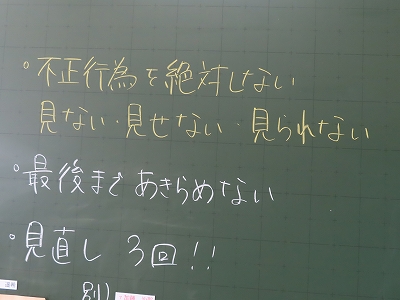 。不正行為を絶対しない
見ない・見せない・見られない
。最後まであきらめない
。見直し 3回!!
別